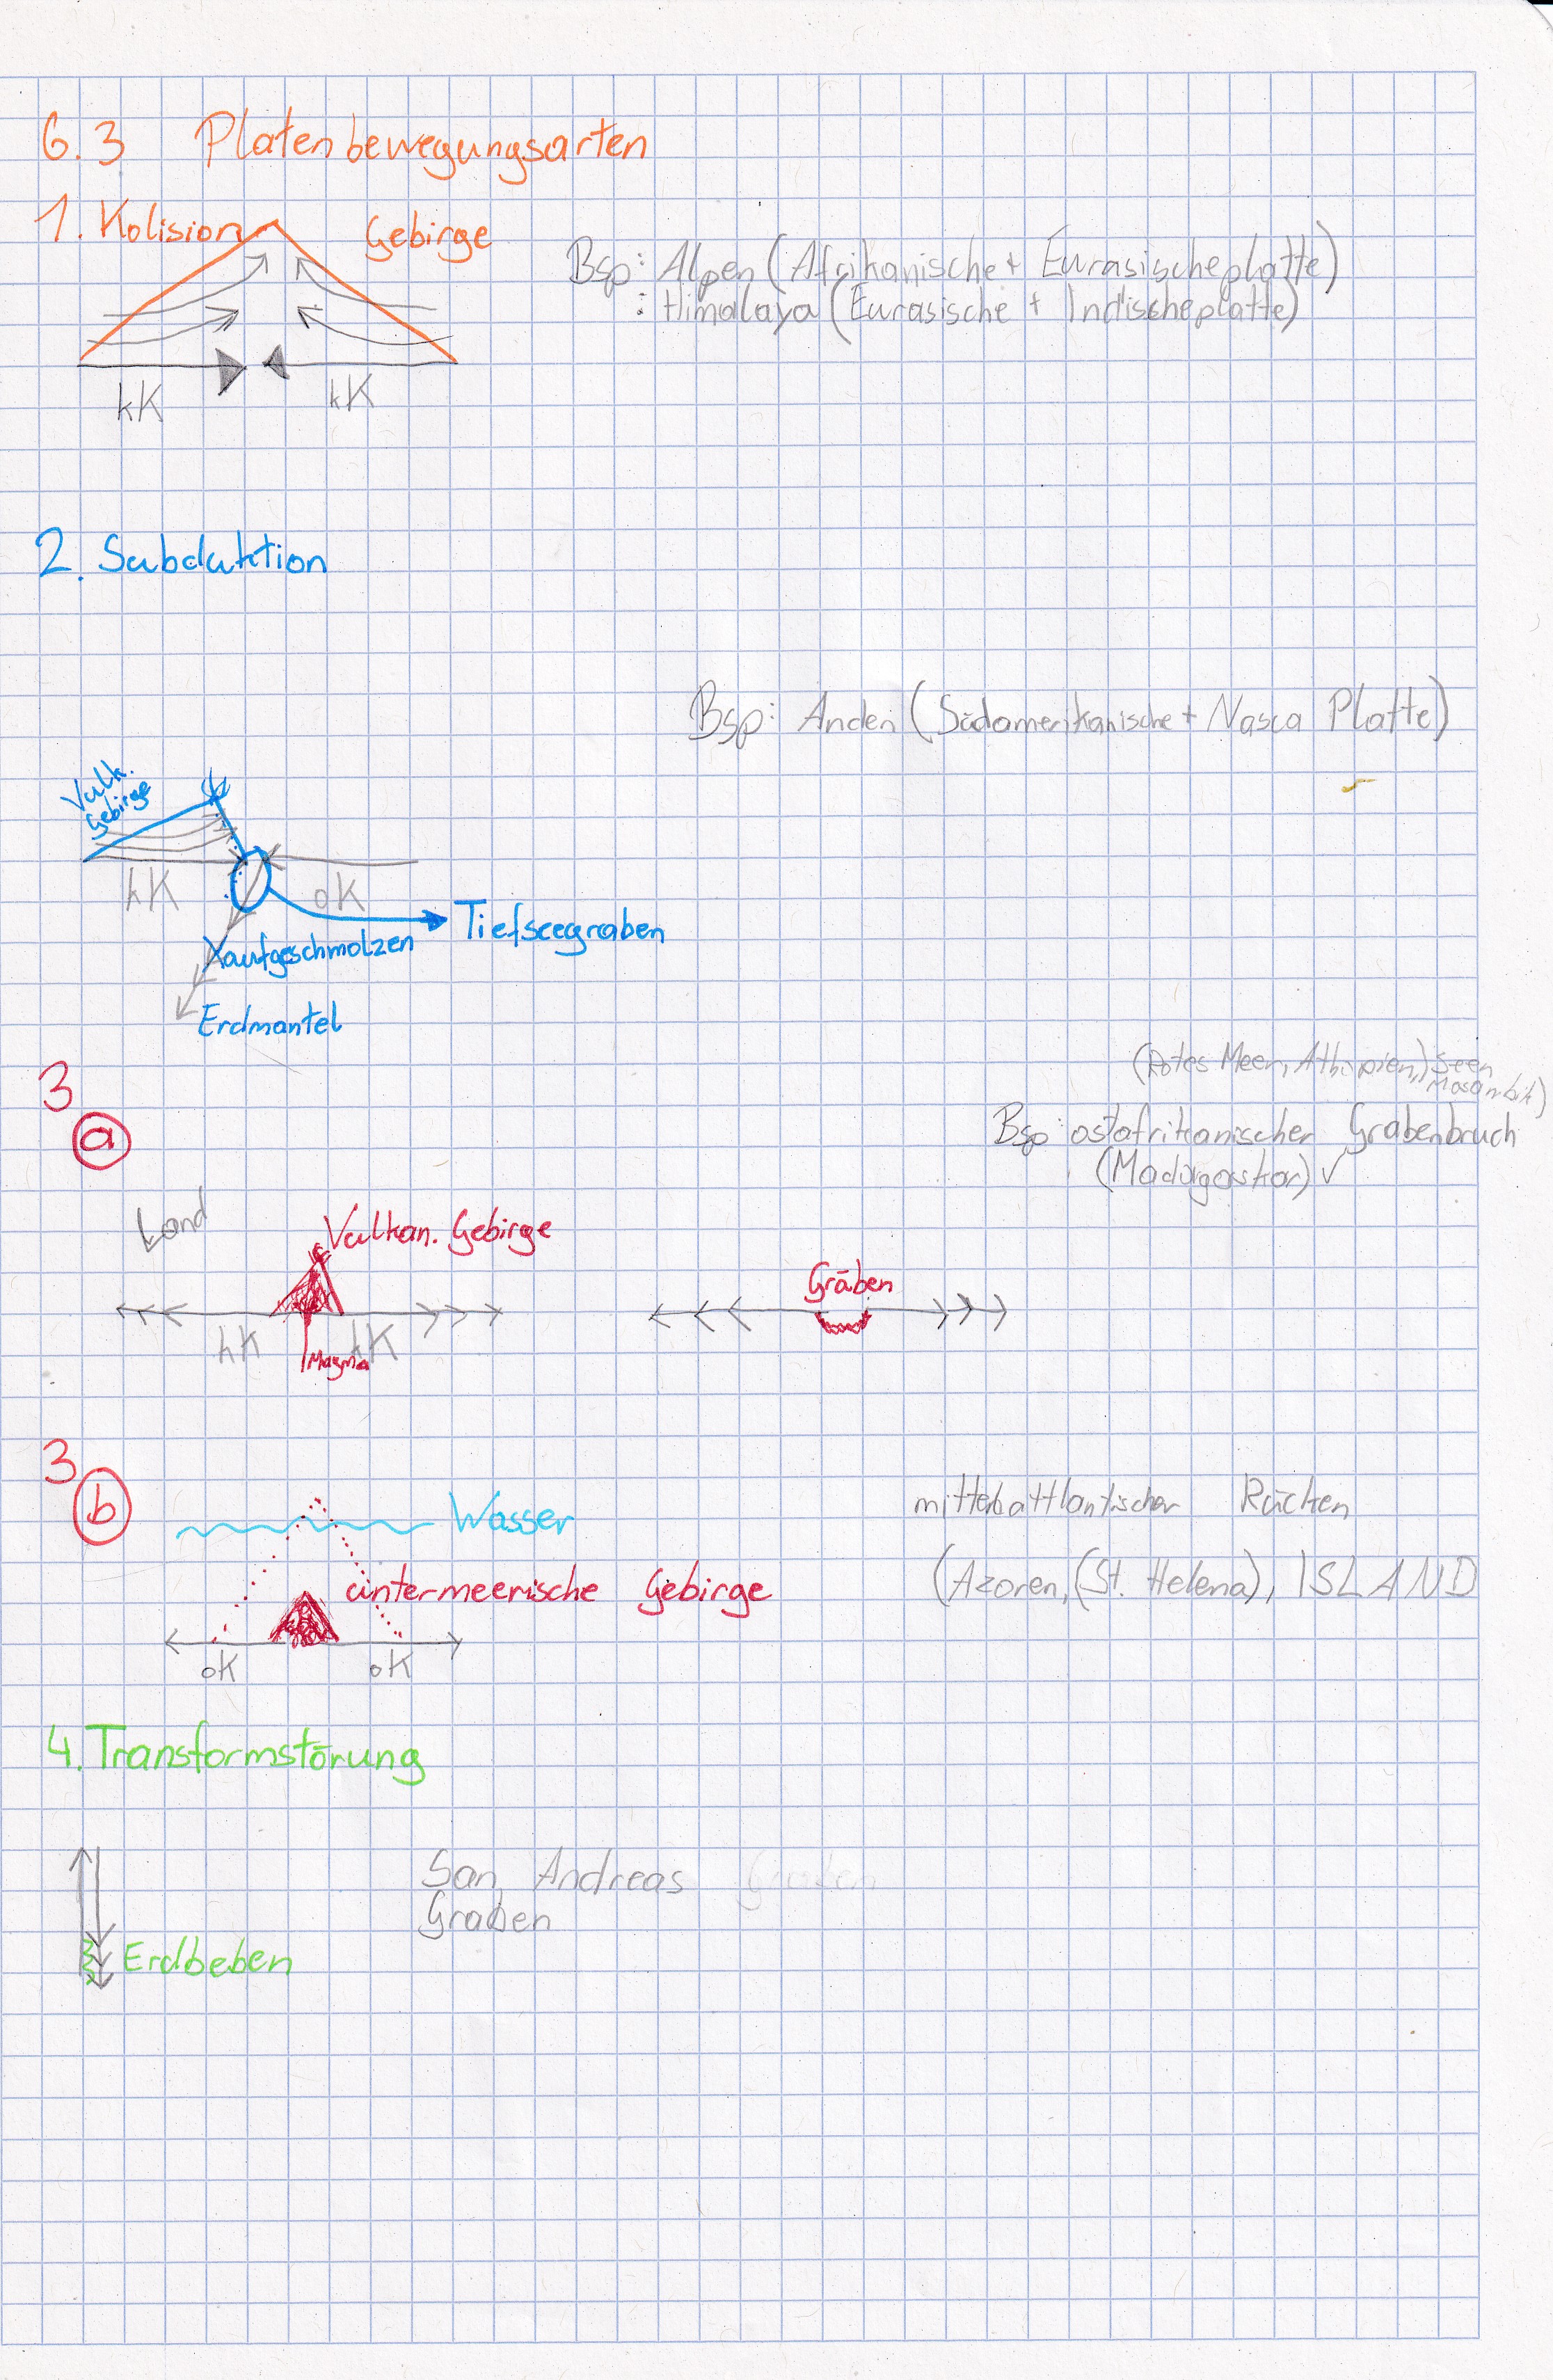 6.3 Platenbewegungsarten
1. Kolision
Gebirge
Bsp: Alpen (Afrikanische + Eurasischeplatte)
: Himalaya (Eurasische + Indischeplatte)
kK kK
2. Subduktion
Bsp: Anden (Südamerikanische + Nasca Platte)
Vulk.
Gebirge
kK oK
Tiefseegraben
aufgeschmolzen
Erdmantel
3
a
(Rotes Meer, Äthopien,) Seen
Mosambik)
Bsp: ostafrikanischer Grabenbruch
(Madagaskar) ✓
Land
Vulkan. Gebirge
Gräben
kK kK
Magma
3
b
Wasser
Rücken
untermeerische Gebirge
(Azoren, (St. Helena), ISLAND
oK oK
4. Transformstörung
San Andreas Graben
Graben
Erdbeben